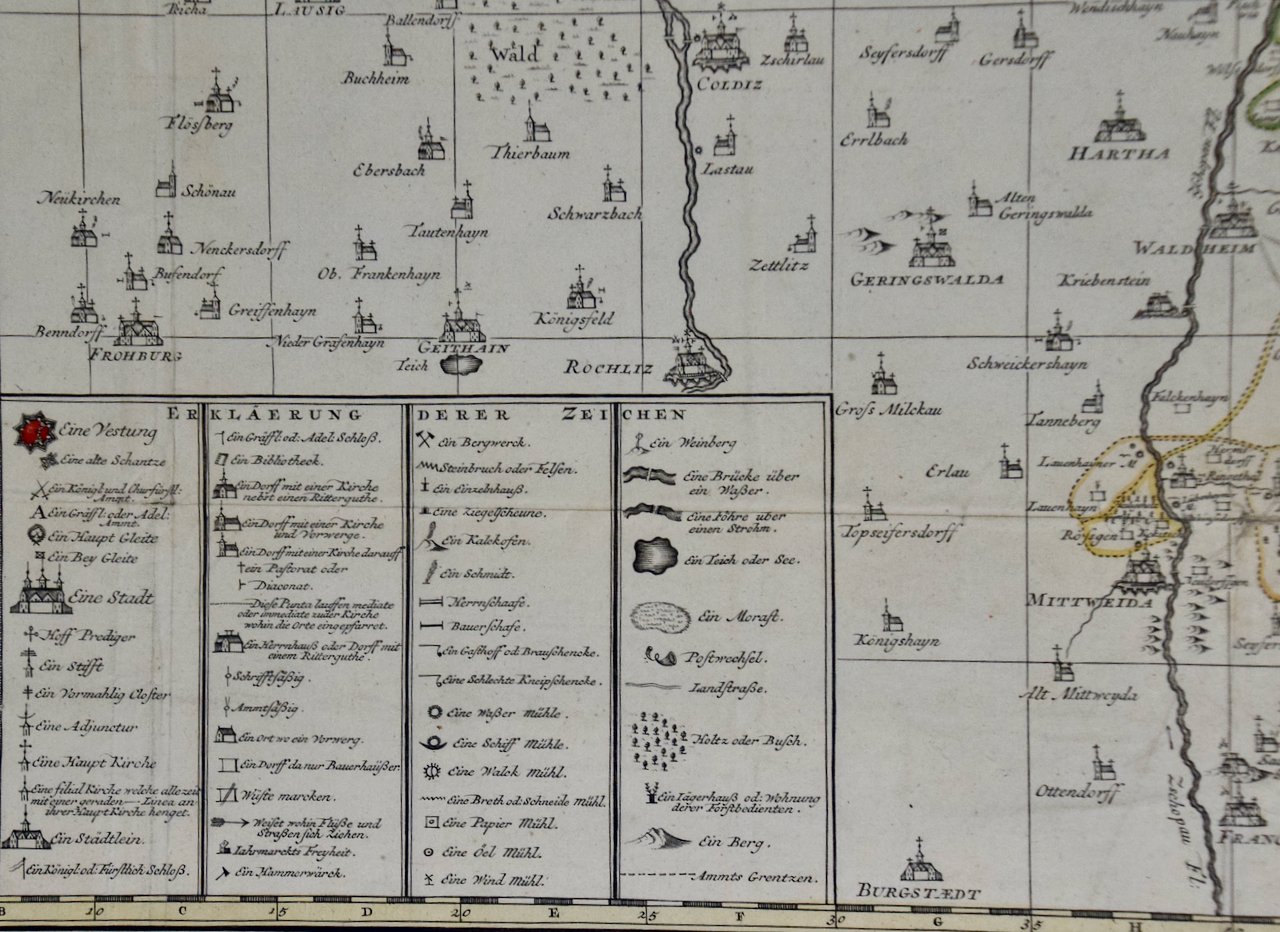 Teicha
LAUSIG
Ballendorff
Wendischhayn
Neuhayn
Buchheim
Wald
Zschirlau
Seyfersdorff
Gersdorff
COLDIZ
Flössberg
Thierbaum
Errlbach
HARTHA
Ebersbach
Lastau
Neükirchen
Schönau
Schwarzbach
Alten
Geringswalda
Tautenhayn
Nenckersdorff
WALDHEIM
Ob. Frankenhayn
Zettlitz
Busendorf
GERINGSWALDA
Kriebenstein
Greissenhayn
Königsfeld
Benndorff
FROHBURG
Nieder Grafenhayn
GEITHAIN
Teich
ROCHLIZ
Schweickershayn
Gross Milckau
Falckenhayn
Tanneberg
Lauenhayner M
Erlau
Lauenhayn
Topseifersdorff
Rössgen
MITTWEIDA
Königshayn
Alt Mittweyda
Ottendorff
Zschopau Fl.
FRANC
BURGSTÆDT
ERKLÄERUNG DERER ZEICHEN
Eine Vestung
Eine alte Schantze
Ein Königl und Churfürstl:
Ammt.
Ein Gräffl: od: Adel:
Ammt.
Ein Haupt Gleite
Ein Bey Gleite
Eine Stadt
Hoff Prediger
Ein Stifft
Ein Vormahlig Closter
Eine Adjunctur
Eine Haupt Kirche
Eine filial Kirche welche allezeit
mit einer geraden Linea an
ihrer Haupt Kirche henget.
Ein Städtlein.
Ein Königl: od: Fürstlich Schloß.
Ein Gräffl: od: Adel: Schloß.
Ein Bibliotheck.
Ein Dorff mit einer Kirche
nebst einen Ritterguthe.
Ein Dorff mit einer Kirche
und Vorwerge.
Ein Dorff mit einer Kirche darauff
ein Pastorat oder
Diaconat.
Diese Punta lauffen mediate
oder immediate zu der Kirche
wohin die Orte eingepfarret.
Ein Herrnhauß oder Dorff mit
einem Ritterguthe.
Schrifftsäßig.
Ammtsäßig.
Ein Ort wo ein Vorwerg.
Ein Dorff da nur Bauerhäußer.
Wüste marcken.
Weiset wohin Flüße und
Straßen sich ziehen.
Iahrmarckts Freyheit.
Ein Hammerwärck.
Ein Bergwerck.
Steinbruch oder Felsen.
Ein Einzelnhauß.
Eine Ziegelscheune.
Ein Kalckofen.
Ein Schmidt.
Herrnschaafe.
Bauerschafe.
Ein Gasthoff od: Brauschencke.
Eine Schlechte Kneipschencke.
Eine Waßer Mühle.
Eine Schiff Mühle.
Eine Walck Mühl.
Eine Breth od: Schneide Mühl.
Eine Papier Mühl.
Eine Oel Mühl.
Eine Wind Mühl.
Ein Weinberg
Eine Brücke über
ein Waßer.
Eine Föhre über
einen Strohm.
Ein Teich oder See.
Ein Morast.
Postwechsel.
Landstraße.
Holtz oder Busch.
Ein Iägerhauß od: Wohnung
derer Forstbedienten.
Ein Berg.
Ammts Grentzen.
B 10 C 15 D 20 E 25 F 30 G 35 H